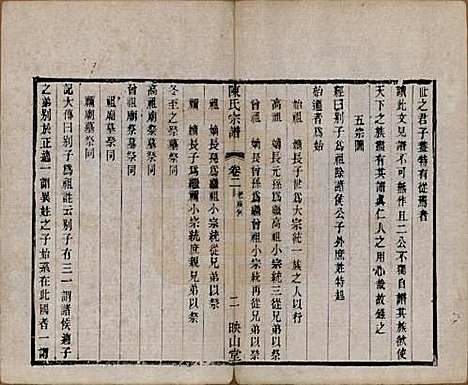 世之君子蓋特有從焉者
讀此文見譜不可無作且二公不獨自譜其族欲使
天下之族皆有其譜眞仁人之用心哉故錄之
五宗圖
經曰別子爲祖除諸侯公子外庶姓特起
始遷者爲始
始祖 嫡長子世爲大宗統一族之人以行
高祖 嫡長元孫爲繼高小宗統三從兄弟以祭
曾祖 嫡長曾孫爲繼曾祖小宗統再從兄弟以祭
陳氏宗譜 卷二 二 映山堂
祖 嫡長孫爲繼祖小宗統從兄弟以祭
禰 嫡長子爲繼禰小宗統庶親兄弟以祭
冬至之祭墓祭
高祖廟墓祭同
曾祖廟墓祭同
祖廟墓祭同
禰廟墓祭同
記大傳曰別子爲祖註云別子有三一謂諸侯適子
之弟別於正適一謂異姓之子始來在此國者一謂